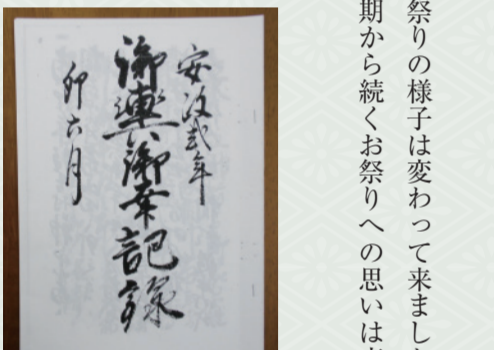 祭りの様子は変わって来まし
期から続くお祭りへの思いは
安政弐年
御轝御幸記録
卯六月